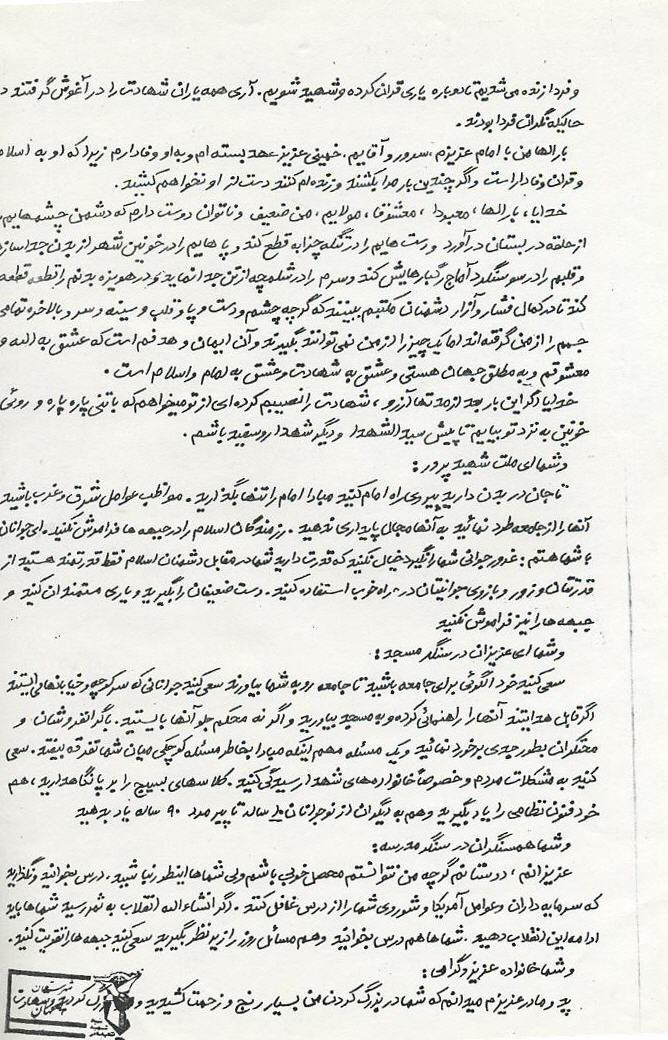 و فردا زنده می شدیم تا دوباره یاری قرآن کرده و شهید شویم. آری همه یاران شهادت را در آغوش گرفتند د
حالیکه نگران فردا بودند.
بارالها من با امام عزیزم، سرور و آقایم، خمینی عزیز عهد بسته ام و به او وفادارم زیرا که او به اسلام
و قرآن وفادار است و اگر چندین بار مرا بکشند و زنده ام کنند دست از او نخواهم کشید.
خدایا، بارالها، معبودا، معشوقا، مولایم، من ضعیف و ناتوان دوست دارم که دشمن چشمهایم
از حلقه در بستان درآورد و دست هایم را در تنگه چزابه قطع کند و پاهایم را در خونین شهر از بدن جدا سازد
و قلبم را در سوسنگرد آماج رگبارهایش کند و سرم را در شلمچه از تن جدا نماید و در هویزه بدنم را قطعه قطعه
کند تا در کمال فشار و آزار دشمنان مکتبم ببینند که گرچه چشم و دست و پا و قلب و سینه و سر و بالاخره تمامی
جسمم را از من گرفته اند اما یک چیز را از من نمی توانند بگیرند و آن ایمان و هدفم است که عشق به الله و
معشوقم و به مطلق جهان هستی و عشق به شهادت و عشق به امام و اسلام است.
خدایا اگر این بار بعد از مدتها آرزو، شهادت را نصیبم کرده ای از تو میخواهم که با تنی پاره پاره و روئی
خونین به نزد تو بیایم تا پیش سید الشهدا و دیگر شهدا روسفید باشم.
و شما ای ملت شهید پرور:
تا جان در بدن دارید پیروی راه امام کنید مبادا امام را تنها بگذارید. مواظب عوامل شرق و غرب باشید
آنها را از جامعه طرد نمائید به آنها مجال پایداری ندهید. رزمندگان اسلام را در جبهه ها فراموش نکنید. ای جوانان
با شما هستم: غرور جوانی شما را نگیرد خیال نکنید که قدرت دارید شما در مقابل دشمنان اسلام فقط قدرتمند هستید از
قدرتتان و زور و بازوی جوانیتان در راه خوب استفاده کنید. دست ضعیفان را بگیرید و یاری مستمندان کنید و
جبهه ها را نیز فراموش نکنید
و شما ای عزیزان در سنگر مسجد:
سعی کنید خود الگوئی برای جامعه باشید تا جامعه رو به شما بیاورند سعی کنید جوانانی که سر کوچه و خیابانها می ایستند
اگر قابل هدایتند آنها را راهنمائی کرده و به مسجد بیاورید و اگر نه محکم جلو آنها بایستید. با گرانفروشان و
محتکران بطور جدی برخورد نمائید و یک مسئله مهم اینکه مبادا بخاطر مسئله کوچکی میان شما تفرقه بیفتد. سعی
کنید به مشکلات مردم و خصوصاً خانواده های شهدا رسیدگی کنید. کلاسهای بسیج را برپا نگاهدارید، هم
خود فنون نظامی را یاد بگیرید و هم به دیگران از نوجوانان ۱۰ ساله تا پیرمرد ۹۰ ساله یاد بدهید
و شما همسنگران در سنگر مدرسه:
عزیزانم، دوستانم گرچه من نتوانستم محصل خوبی باشم ولی شماها اینطور نباشید. درس بخوانید و نگذارید
که سرمایه داران و عوامل آمریکا و شوروی شما را از درس غافل کنند. اگر انشاءالله انقلاب به ثمر رسید شماها باید
ادامه این انقلاب دهید. شماها هم درس بخوانید و هم مسائل روز را زیر نظر بگیرید سعی کنید جبهه ها را تقویت کنید.
و شما خانواده عزیز و گرامی:
پدر و مادر عزیزم میدانم که شما در بزرگ کردن من بسیار رنج و زحمت کشیدید و